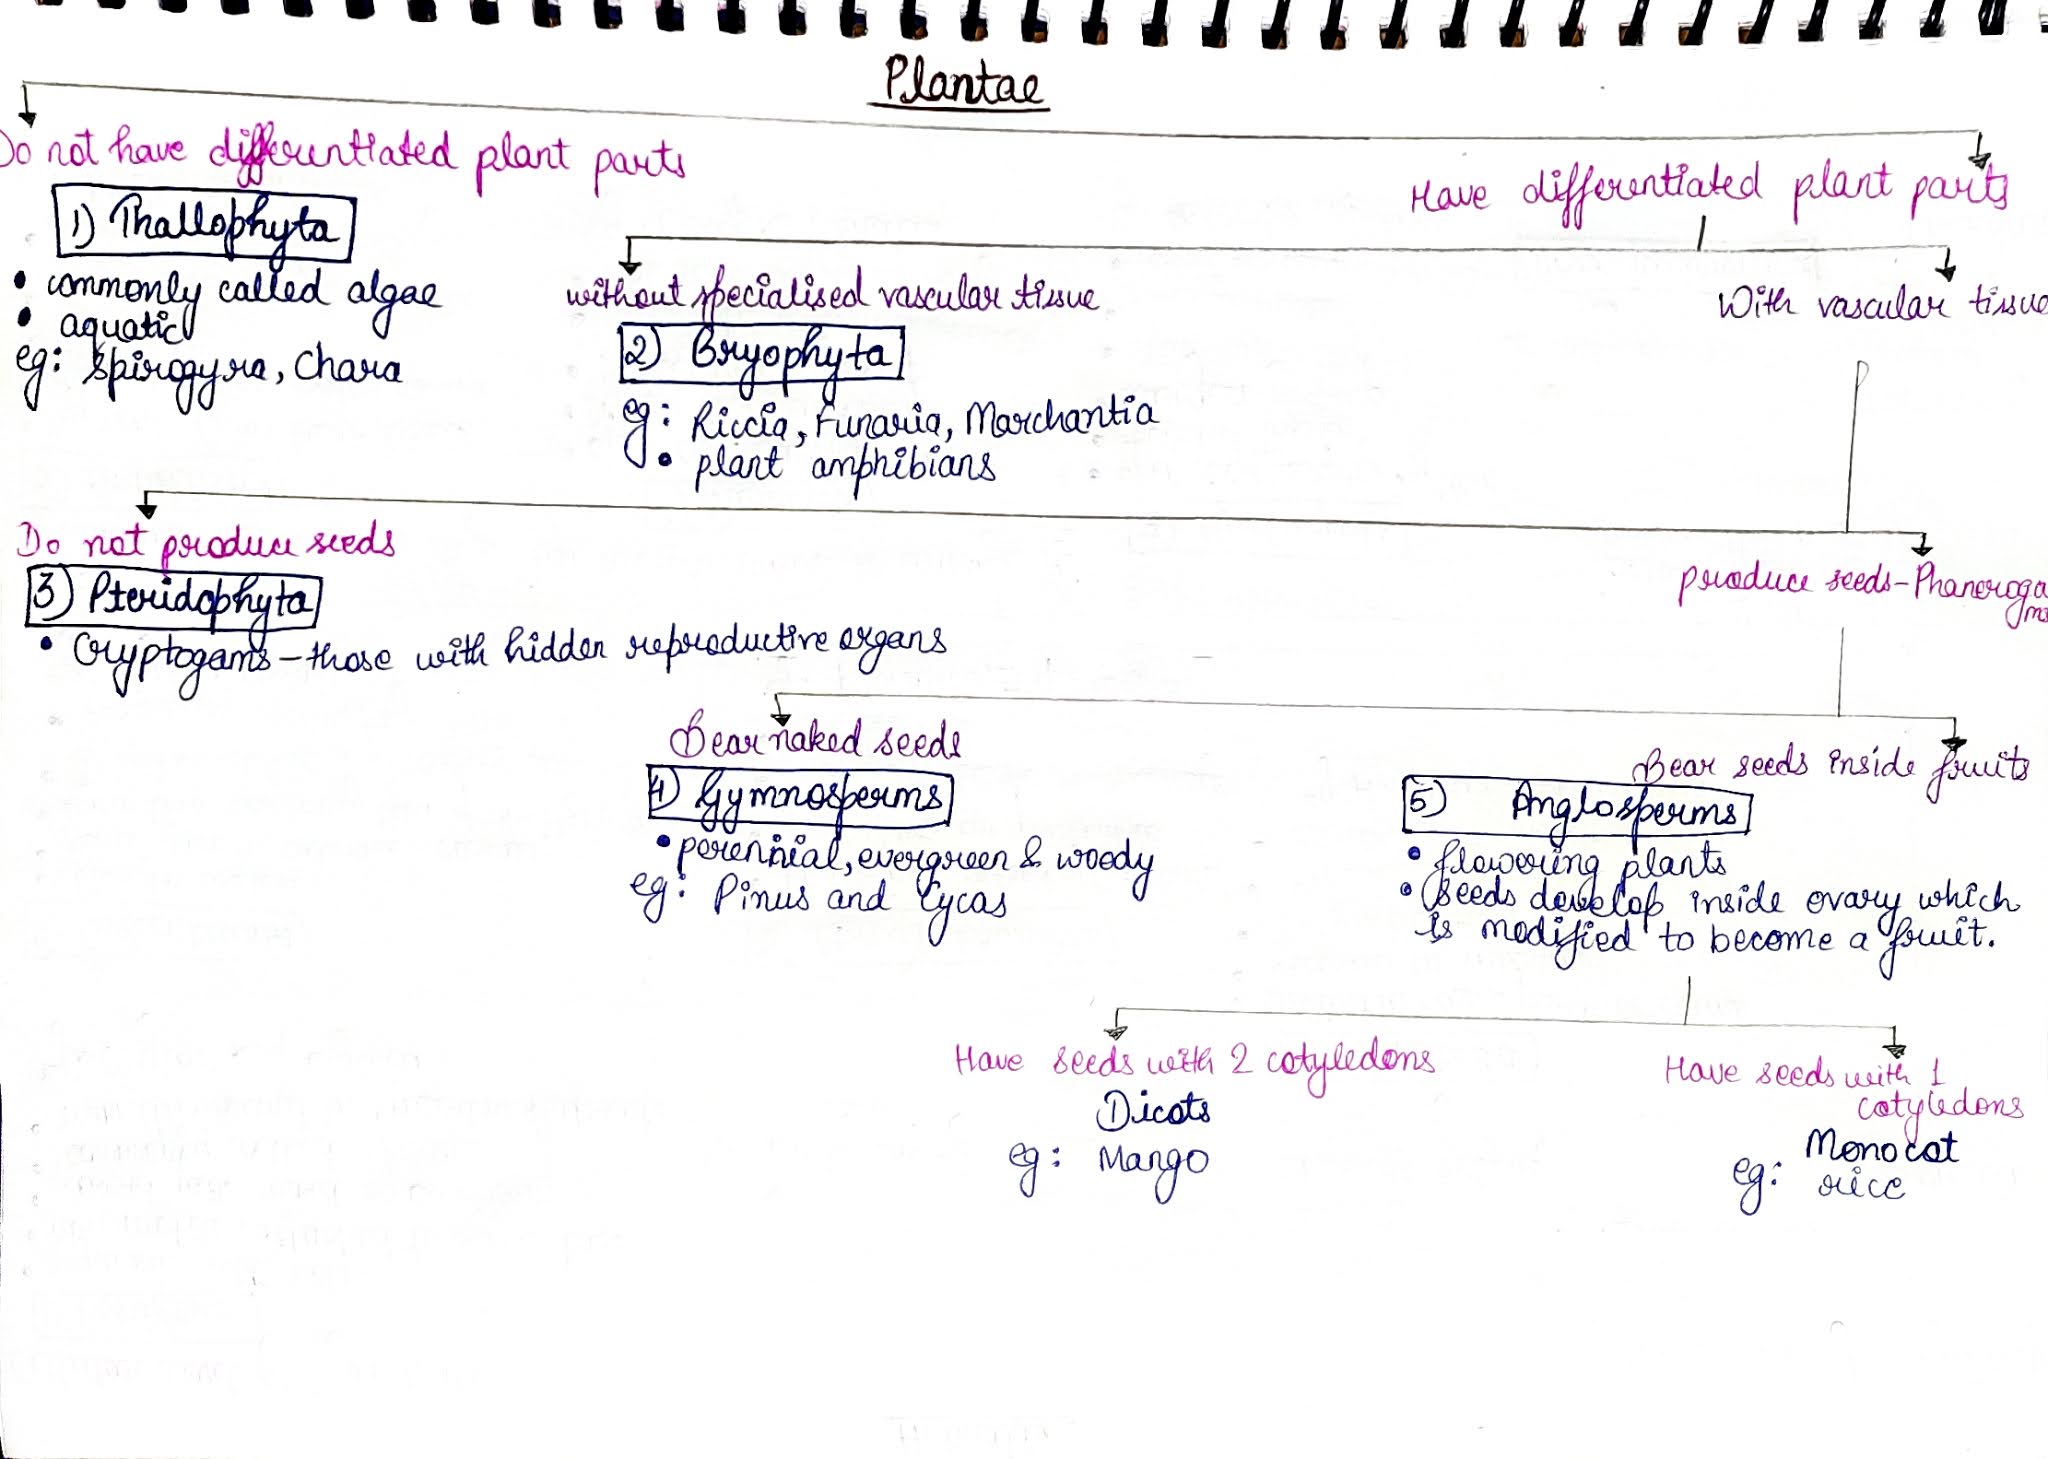 Plantae
Do not have differentiated plant parts
Have differentiated plant parts
1) Thallophyta
• commonly called algae
• aquatic
eg: Spirogyra, Chara
without specialised vascular tissue
With vascular tissue
2) Bryophyta
eg: Riccia, Funaria, Marchantia
• plant amphibians
Do not produce seeds
produce seeds - Phaneroga
ms
3) Pteridophyta
• Cryptogams - those with hidden reproductive organs
Bear naked seeds
Bear seeds inside fruits
4) Gymnosperms
• perennial, evergreen & woody
eg: Pinus and Cycas
5) Angiosperms
• flowering plants
• seeds develop inside ovary which
is modified to become a fruit.
Have seeds with 2 cotyledons
Dicots
eg: Mango
Have seeds with 1
cotyledons
Monocot
eg: rice